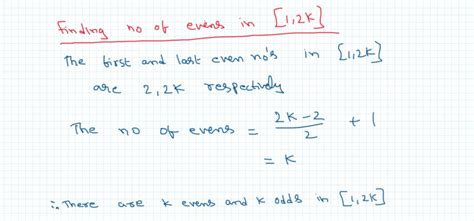 Finding no of evens in [1,2K]
The first and last even no's in [1,2K]
are 2,2K respectively
The no of evens = (2K-2)/2 + 1
= K
∴ There are K evens and K odds in [1,2K]